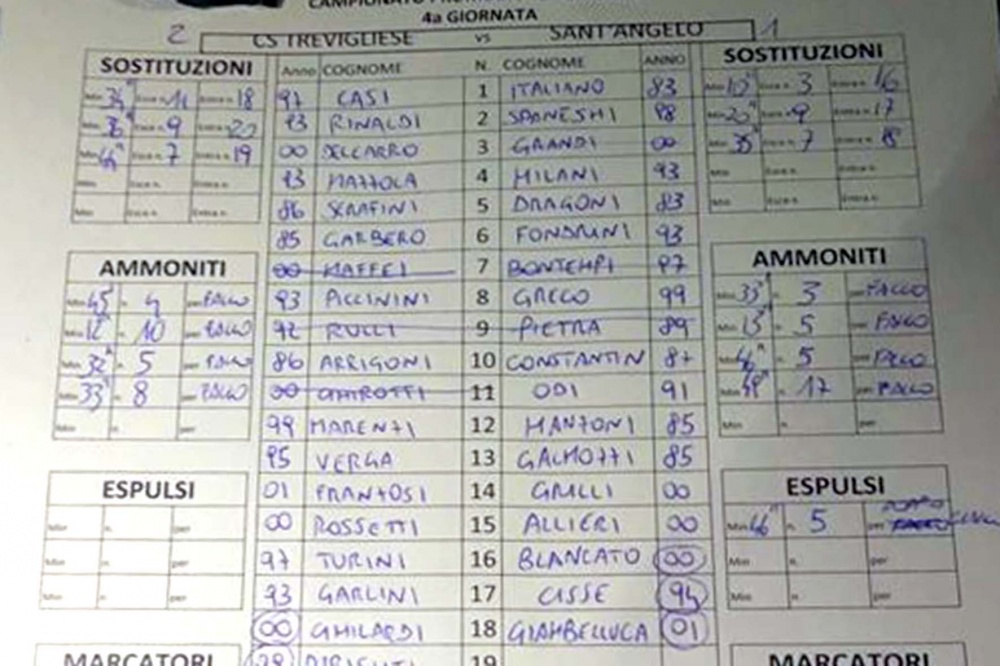 4a GIORNATA
2 CS TREVIGLIESE vs SANT'ANGELO 1
SOSTITUZIONI Anno COGNOME N. COGNOME ANNO SOSTITUZIONI
Min Esce n. 11 Entra n. 18 97 CASI 1 ITALIANO 83 Min 10" 3 16
Min Esce n. 9 Entra n. 20 93 RINALDI 2 88 Min 20" 9 17
Min Esce n. 7 Entra n. 19 00 DELCARRO 3 GRANDI 00 Min 35" 7 18
Min Esce n. Entra n. 93 MAZZOLA 4 MILANI 93 Min Esce n. Entra n.
Min Esce n. Entra n. 86 SERAFINI 5 DRAGONI 83 Min Esce n. Entra n.
85 GARBERO 6 FONDRINI 93
AMMONITI 00 MAFFEI 7 BONTEMPI 97 AMMONITI
Min 45" n. 4 per FALLO 93 PICCININI 8 GRECO 99 Min 33" n. 3 per FALLO
Min 12" n. 10 per FALLO 92 RULLI 9 PIETRA 89 Min 15" n. 5 per FALLO
Min 32" n. 5 per FALLO 86 ARRIGONI 10 CONSTANTIN 87 Min 46" n. 5 per FALLO
Min 33" n. 8 per FALLO 00 CHIROTTI 11 ODI 91 Min n. 17 per FALLO
Min n. per 99 MARENZI 12 MANZONI 85 Min n. per
95 VERGA 13 GALMOZZI 85
ESPULSI 01 FRANZOSI 14 GRILLI 00 ESPULSI
Min n. per 00 ROSSETTI 15 ALLIERI 00 Min 46" n. 5 per
Min n. per 97 TURINI 16 BLANCATO 00 Min n. per
Min n. per 93 GARLINI 17 CISSE 94 Min n. per
00 GHILARDI 18 GIAMBELLUCA 01
MARCATORI 19 MARCATORI